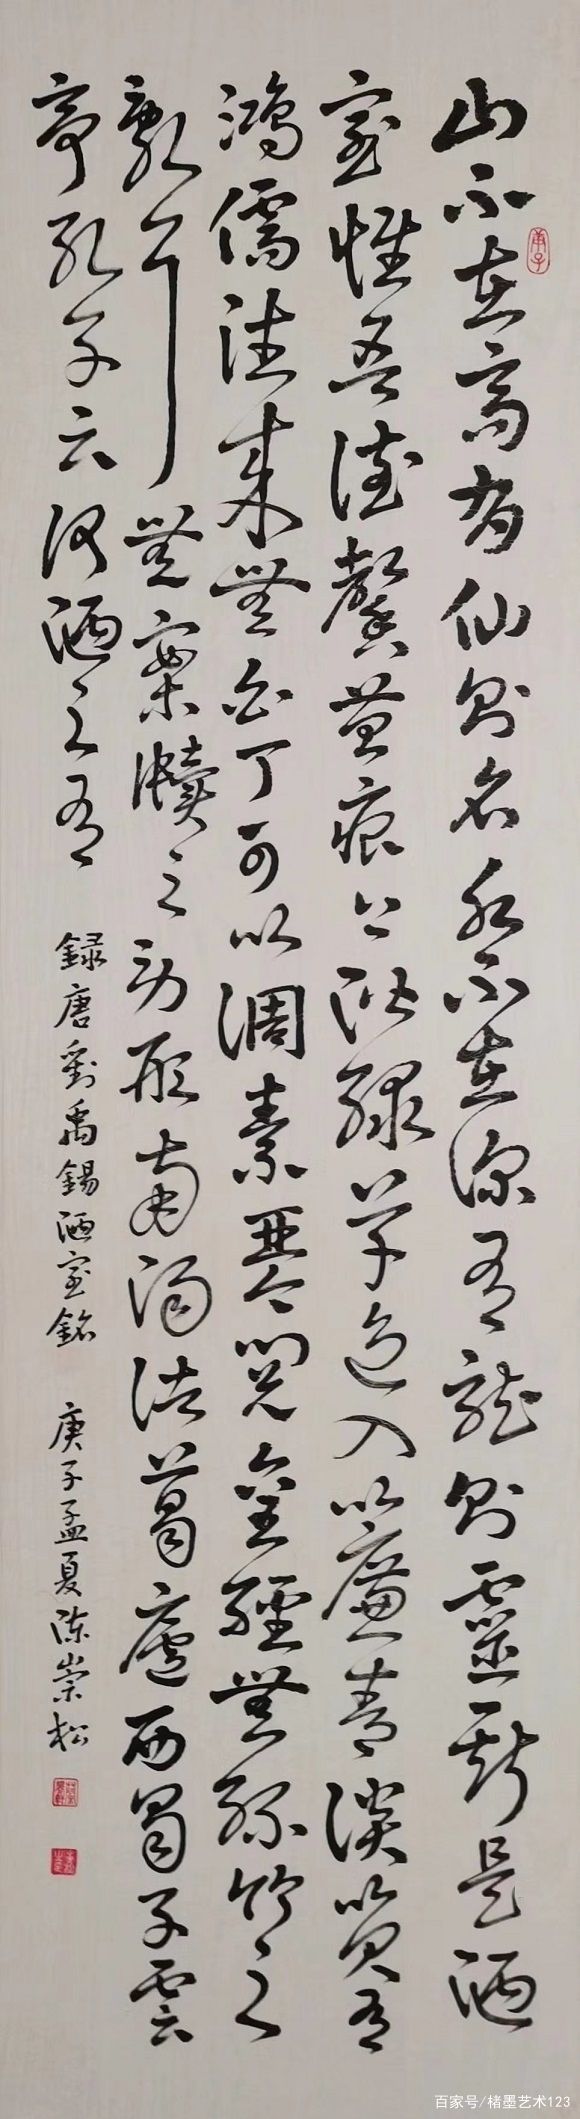 山不在高有仙則名水不在深有龍則靈斯是陋
室惟吾德馨苔痕上階綠草色入簾青談笑有
鴻儒往来無白丁可以調素琴閱金經無絲竹之
亂耳無案牘之勞形南陽諸葛廬西蜀子雲
亭孔子云何陋之有
録唐劉禹錫陋室銘 庚子孟夏陳崇松
庚子
百家号/楮墨艺术123